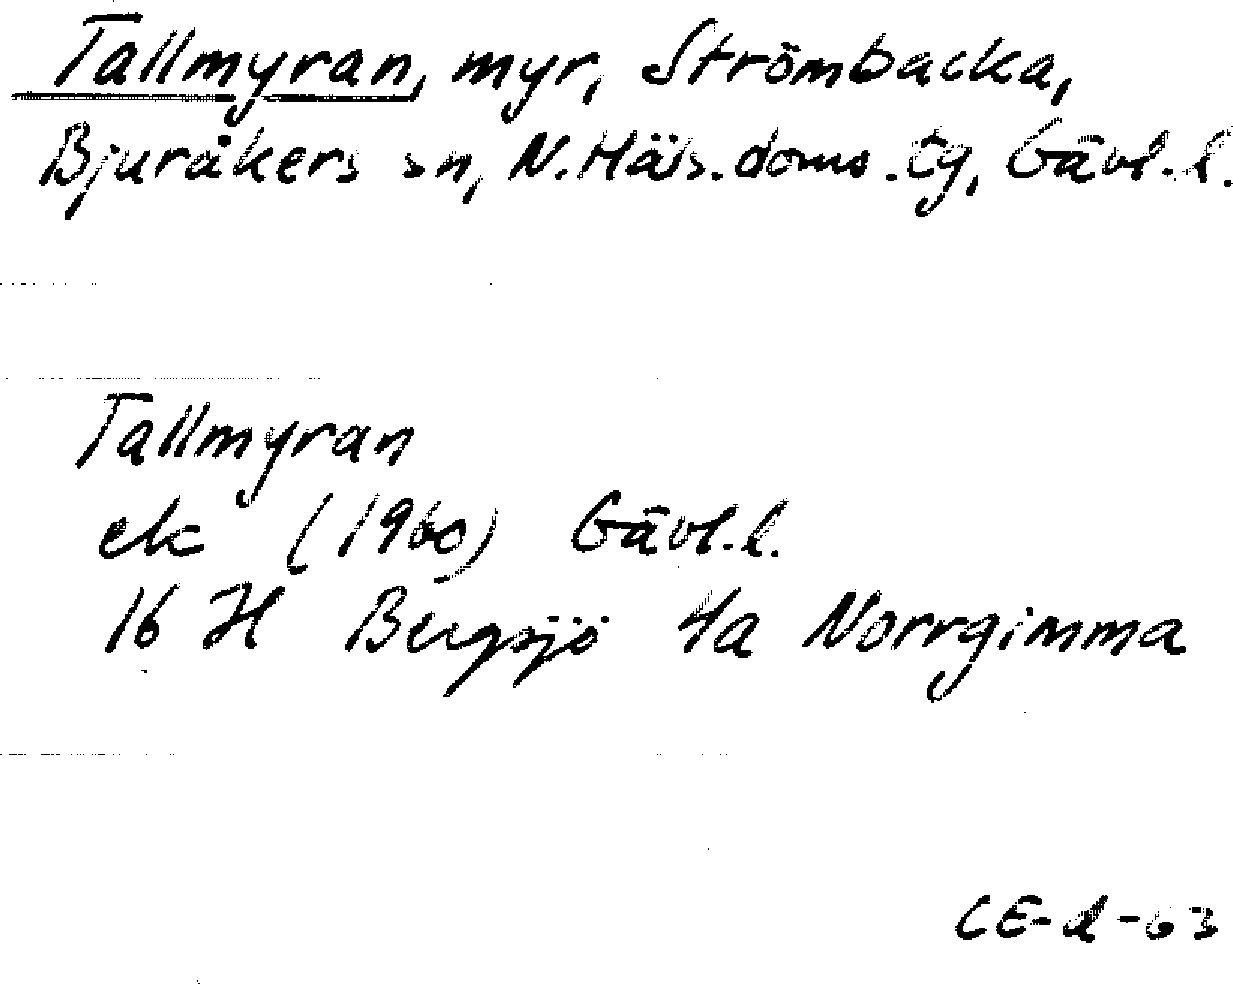 Tallmyran, myr, Strömbacka,
Bjuråkers sn, N.Häls.doms.tg, Gävl.l.
Tallmyran
ek (1960) Gävl.l.
16 H Bergsjö 4a Norrgimma
CE-d-63